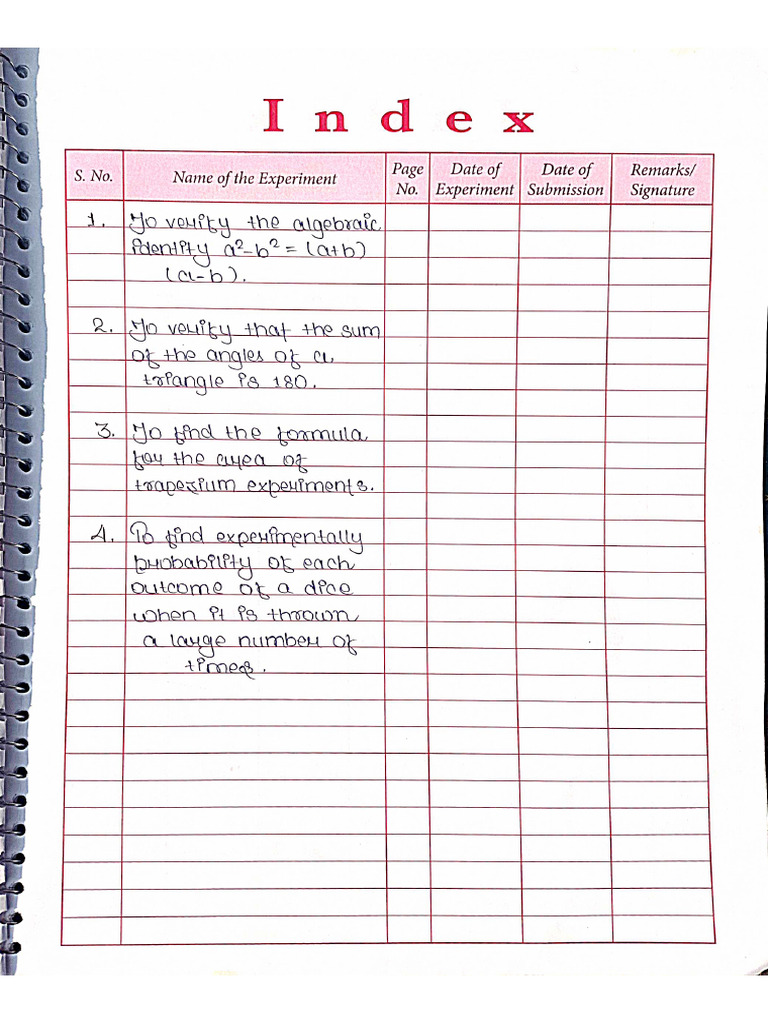 Index
S. No. Name of the Experiment Page No. Date of Experiment Date of Submission Remarks/ Signature
1. To verify the algebraic
identity a²-b² = (a+b)
(a-b).
2. To verify that the sum
of the angles of a
triangle is 180.
3. To find the formula
for the area of
trapezium experiments.
4. To find experimentally
probability of each
outcome of a dice
when it is thrown
a large number of
times.